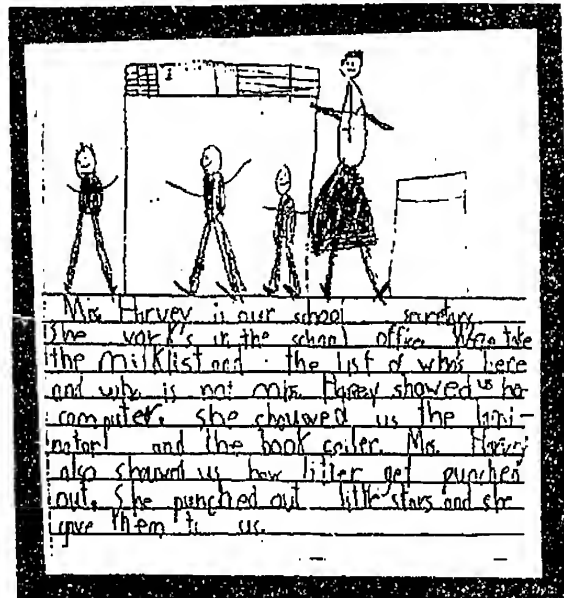 Mrs. Harvey is our school secretary.
She work's in the school office. We take
the milklist and the list of who's here
and who is not. Mrs. Harvey showed us her
computer. She chouwed us the lami-
nator and the book coiler. Mrs. Harvey
also showed us how litter get punched
out. She punched out little stars and she
gave them to us.